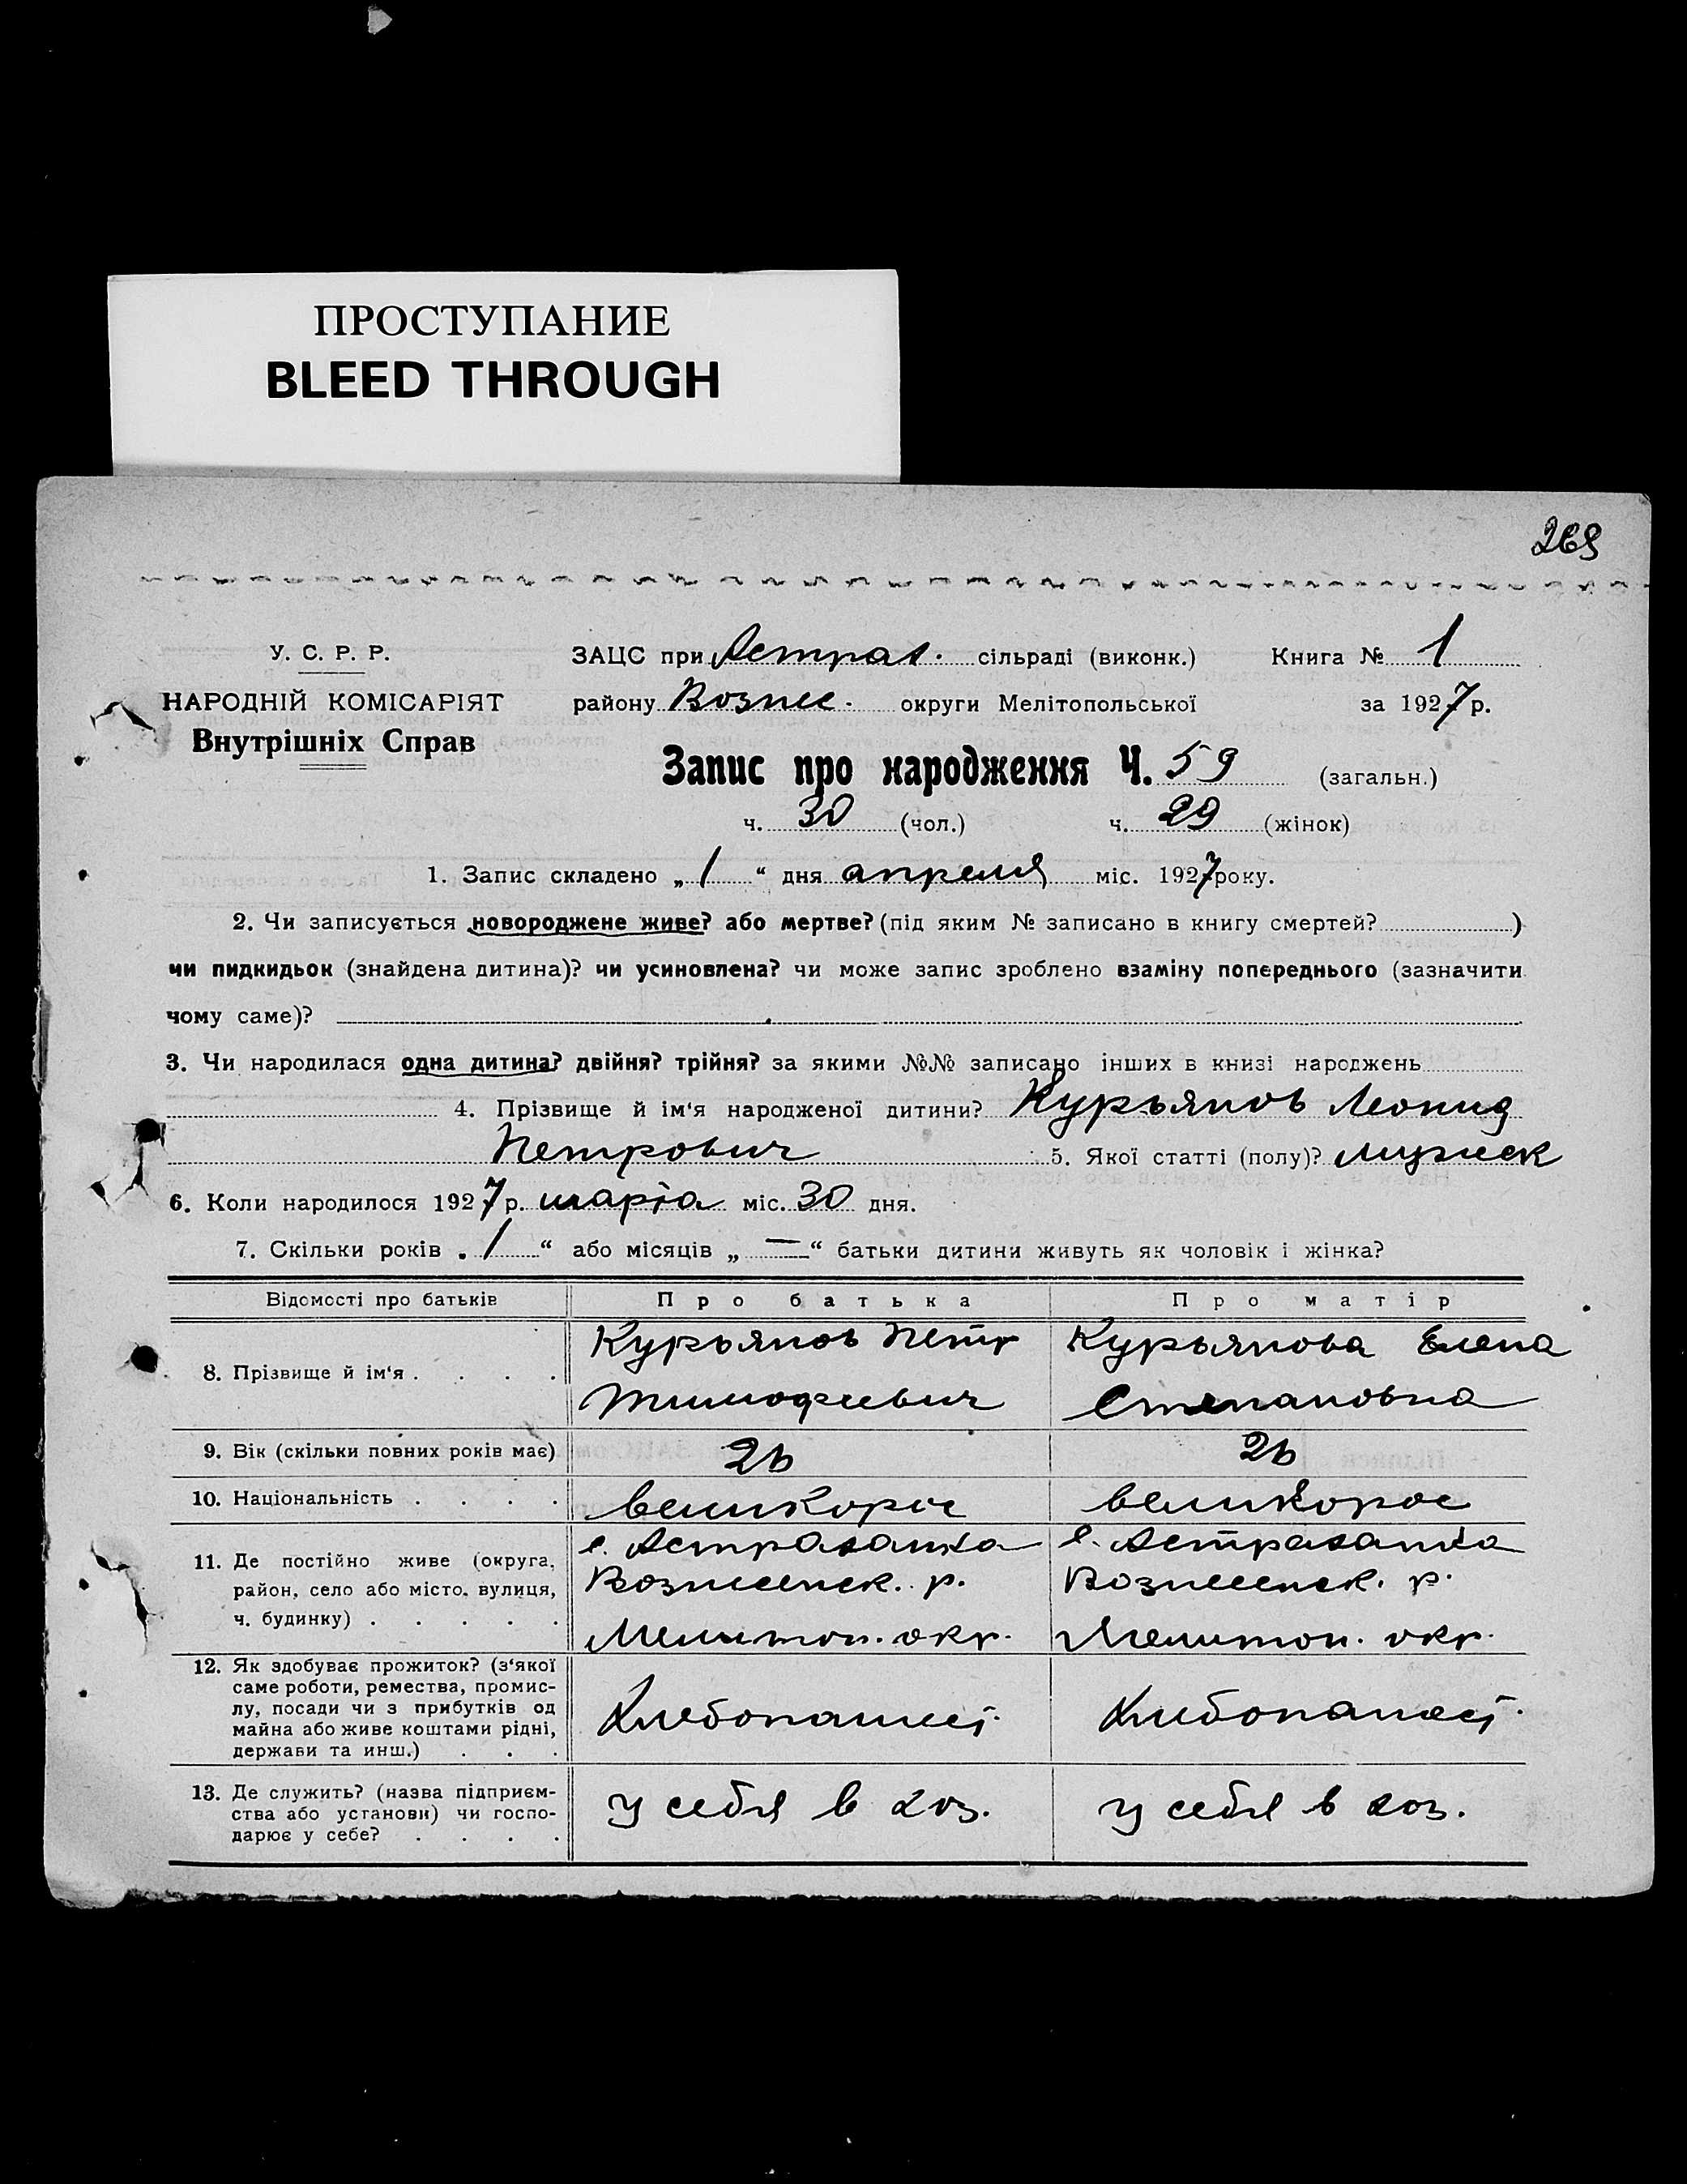 ПРОСТУПАНИЕ
BLEED THROUGH
У. С. Р. Р.
НАРОДНІЙ КОМІСАРІЯТ
Внутрішніх Справ
ЗАЦС при Астрах. сільраді (виконк.) Книга № 1
району Вознес. округи Мелітопольської за 1927 р.
Запис про народження Ч. 59 (загальн.)
ч. 30 (чол.) ч. 29 (жінок)
1. Запис складено „ 1 “ дня апреля міс. 1927 року.
2. Чи записується новороджене живе? або мертве? (під яким № записано в книгу смертей? )
чи пидкидьок (знайдена дитина)? чи усиновлена? чи може запис зроблено взаміну попереднього (зазначити
чому саме)?
3. Чи народилася одна дитина? двійня? трійня? за якими №№ записано інших в книзі народжень
4. Прізвище й ім'я народженої дитини? Курьянов Леонид
Петрович 5. Якої статті (полу)? мужеск
6. Коли народилося 1927 р. марта міс. 30 дня.
7. Скільки років „ 1 “ або місяців „ — “ батьки дитини живуть як чоловік і жінка?
Відомості про батьків Про батька Про матір
8. Прізвище й ім'я . . . .
Курьянов Петр
Тимофеевич
Курьянова Елена
Степановна
9. Вік (скільки повних років має) 26 26
10. Національність . . . . великорос великорос
11. Де постійно живе (округа,
район, село або місто, вулиця,
ч. будинку) . . . . .
с. Астраханка
Вознесенск. р.
Мелитоп. окр.
с. Астраханка
Вознесенск. р.
Мелитоп. окр.
12. Як здобуває прожиток? (з'якої
саме роботи, ремества, промис-
лу, посади чи з прибутків од
майна або живе коштами рідні,
держави та инш.) . . .
Хлебопашест.
Хлебопашест.
13. Де служить? (назва підприєм-
ства або установи) чи госпо-
дарює у себе? . . . .
у себя в хоз.
у себя в хоз.